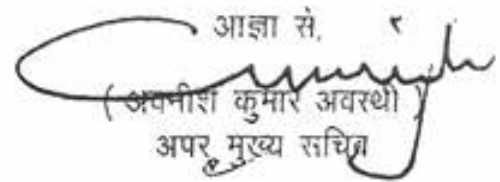 आज्ञा से,
( अवनीश कुमार अवस्थी )
अपर मुख्य सचिव